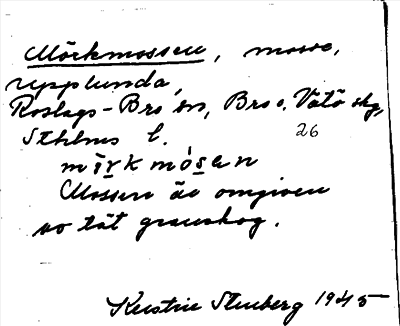 Mörkmossen, mosse,
Upplunda,
Roslags-Bro sn, Bro o. Vätö skg,
Sthlms l. 26
mö̀rkmósen
Mossen är omgiven
av tät granskog.
Kerstin Stenberg 1945